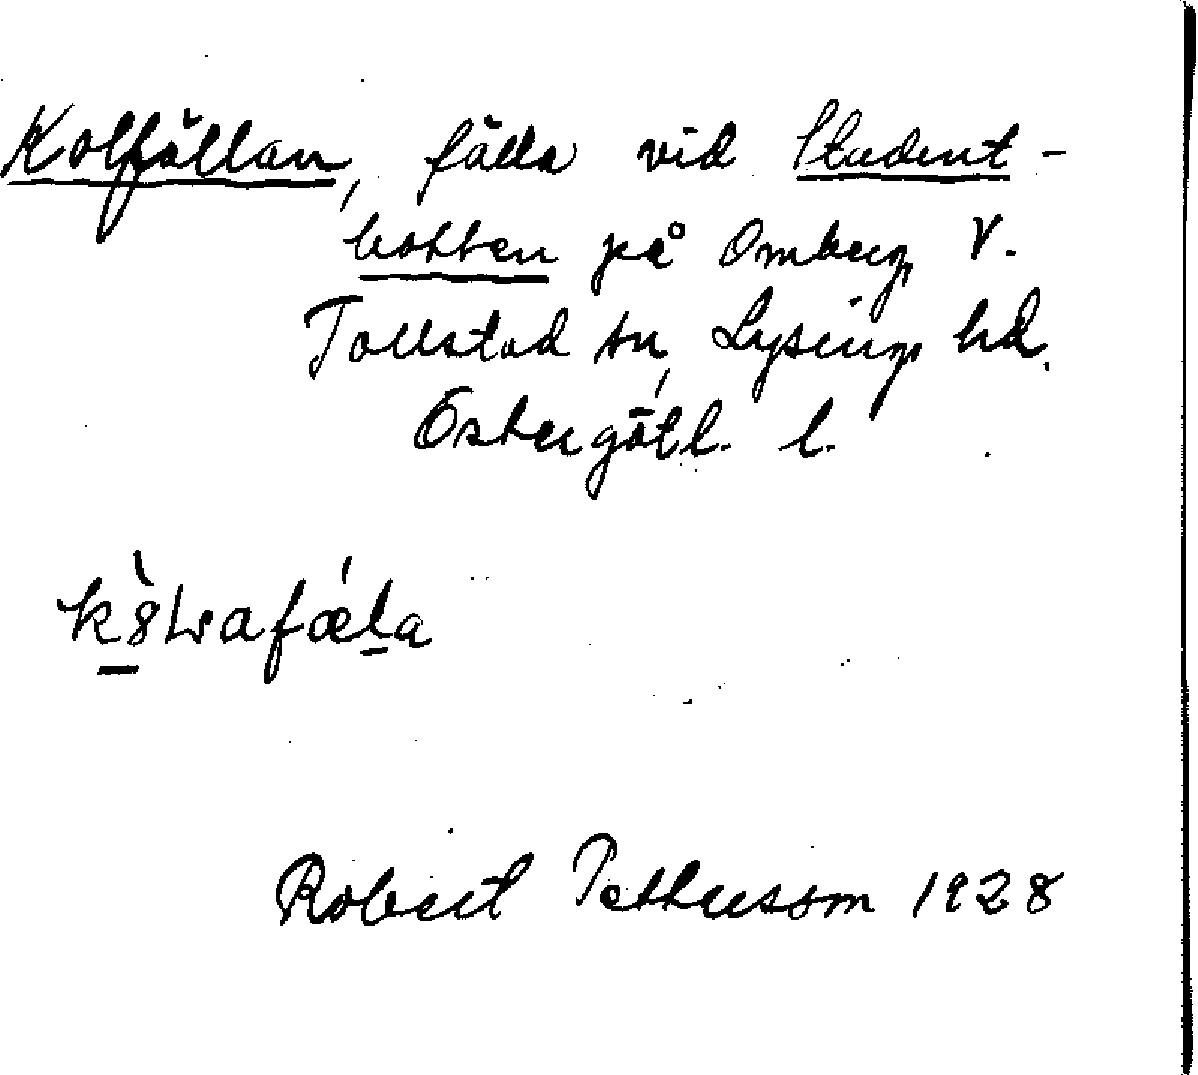 Kolfällan, fälla vid Student-
botten på Omberg, V.
Tollstad sn, Lysings hd.
Östergötl. l.
Robert Pettersson 1928